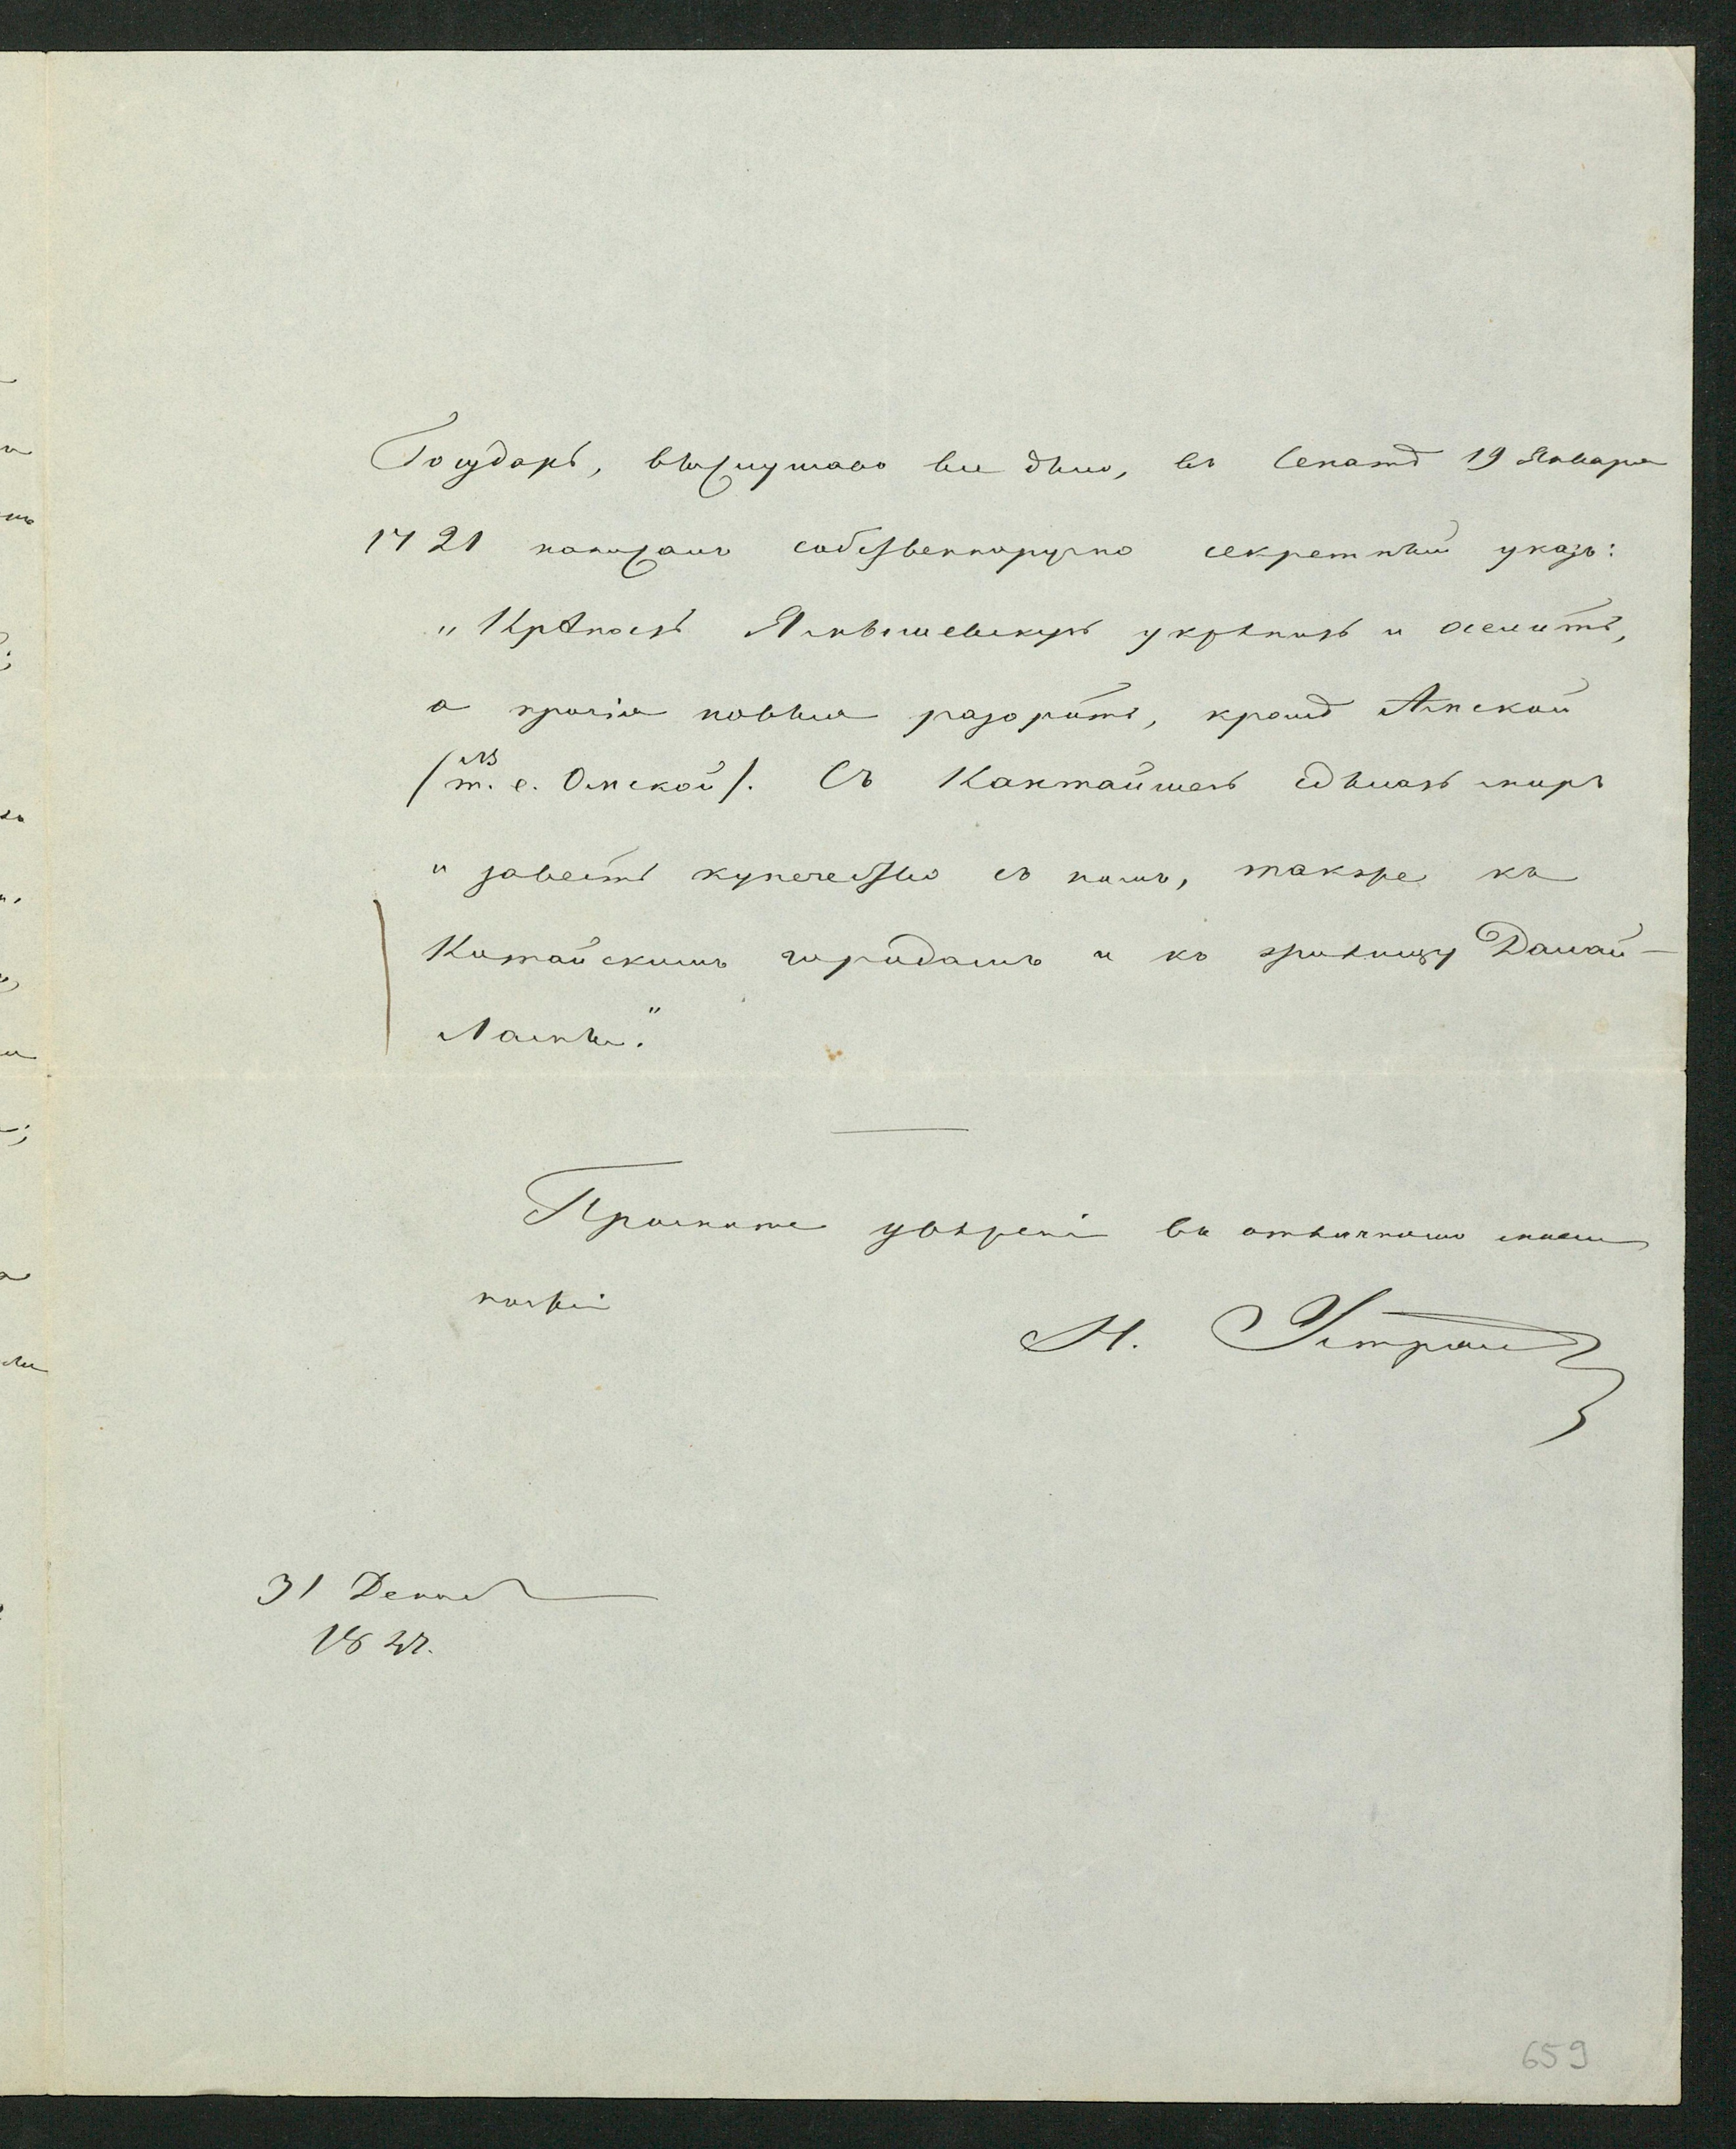 Государь, выслушавъ все дѣло, въ Сенатѣ 19 Января
1721 написалъ собственноручно секретный указъ:
„Крѣпость Ямышевскую укрѣпить и осилить,
а прочія новыя разорить, кромѣ Амской
(т. е. Омской). Съ Контайшею сдѣлать миръ
и завесть купечество съ нимъ, также къ
Китайскимъ городамъ и къ границу Далай-
Ламы."
Примите увѣреніе въ отличномъ моемъ
почтеніи
Н. Устрялов
31 Декаб
18
659